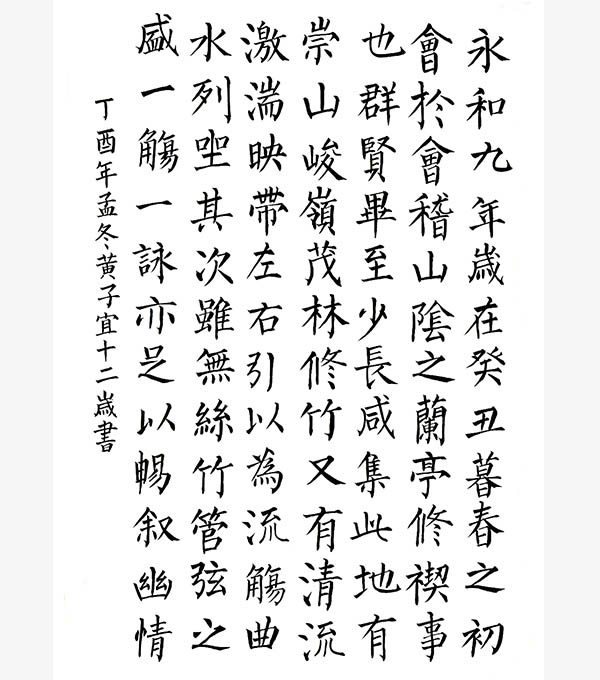 永和九年歲在癸丑暮春之初
會於會稽山陰之蘭亭修禊事
也群賢畢至少長咸集此地有
崇山峻嶺茂林修竹又有清流
激湍映帶左右引以為流觴曲
水列坐其次雖無絲竹管弦之
盛一觴一詠亦足以暢叙幽情
丁酉年孟冬黄子宜十二歲書